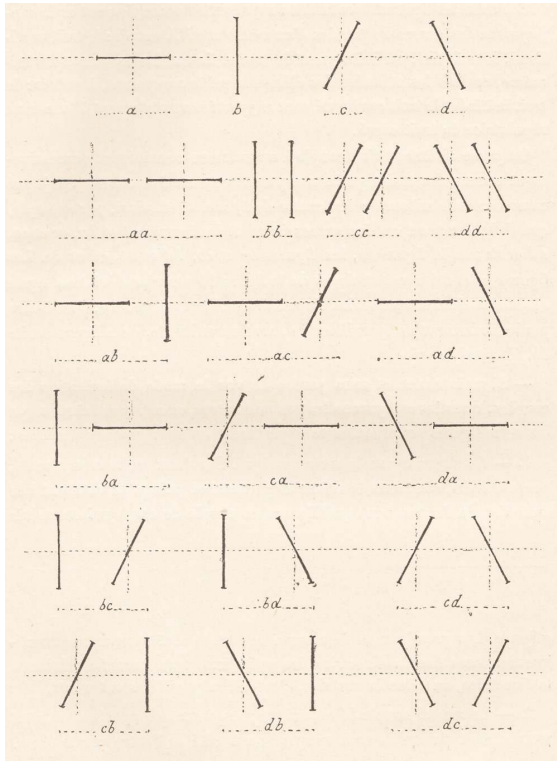 a b c d
aa bb cc dd
ab ac ad
ba ca da
bc bd cd
cb db dc